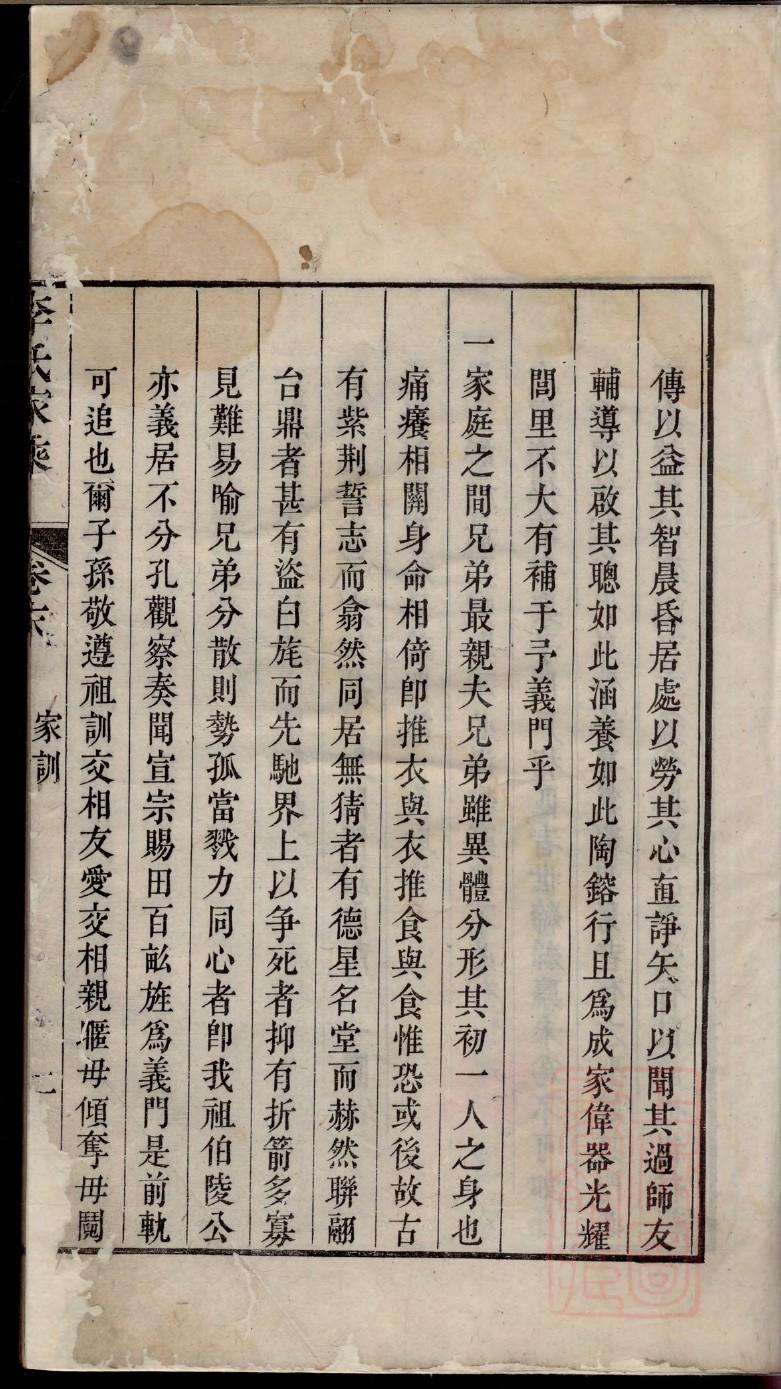 傅以益其智晨昏居處以勞其心直諍矢口以聞其過師友
輔導以啟其聰如此涵養如此陶鎔行且爲成家偉器光耀
閭里不大有補于予義門乎
一家庭之間兄弟最親夫兄弟雖異體分形其初一人之身也
痛癢相關身命相倚卽推衣與衣推食與食惟恐或後故古
有紫荆誓志而翕然同居無猜者有德星名堂而赫然聯翮
台鼎者甚有盜白旄而先馳界上以争死者抑有折箭多寡
見難易喻兄弟分散則勢孤當戮力同心者卽我祖伯陵公
亦義居不分孔觀察奏聞宣宗賜田百畆旌爲義門是前軌
可追也爾子孫敬遵祖訓交相友愛交相親暱毋傾奪毋鬩
李氏家乘
卷六
家訓